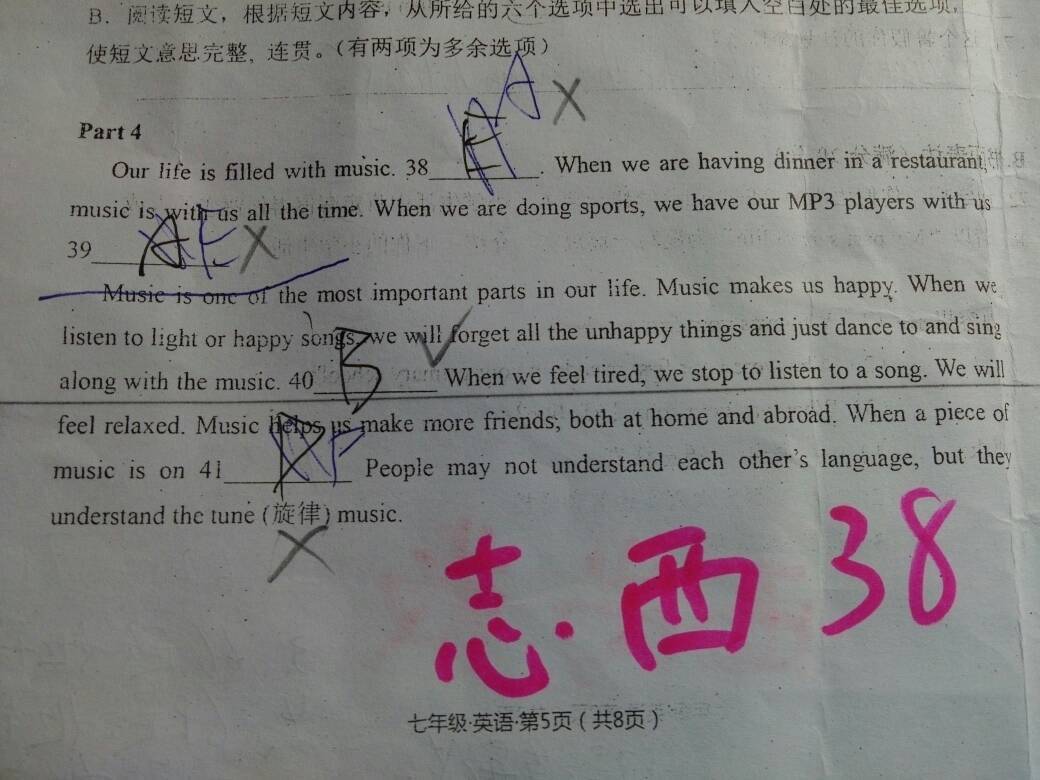 B. 阅读短文，根据短文内容，从所给的六个选项中选出可以填入空白处的最佳选项，
使短文意思完整, 连贯。（有两项为多余选项）
A ×
Part 4
Our life is filled with music. 38______. When we are having dinner in a restaurant,
music is with us all the time. When we are doing sports, we have our MP3 players with us
39______ E ×
Music is one of the most important parts in our life. Music makes us happy. When we
listen to light or happy songs, we will forget all the unhappy things and just dance to and sing
along with the music. 40 B ✓ When we feel tired, we stop to listen to a song. We will
feel relaxed. Music helps us make more friends, both at home and abroad. When a piece of
music is on 41 F People may not understand each other's language, but they
understand the tune (旋律) music.
×
志·西 38
七年级·英语·第5页（共8页）